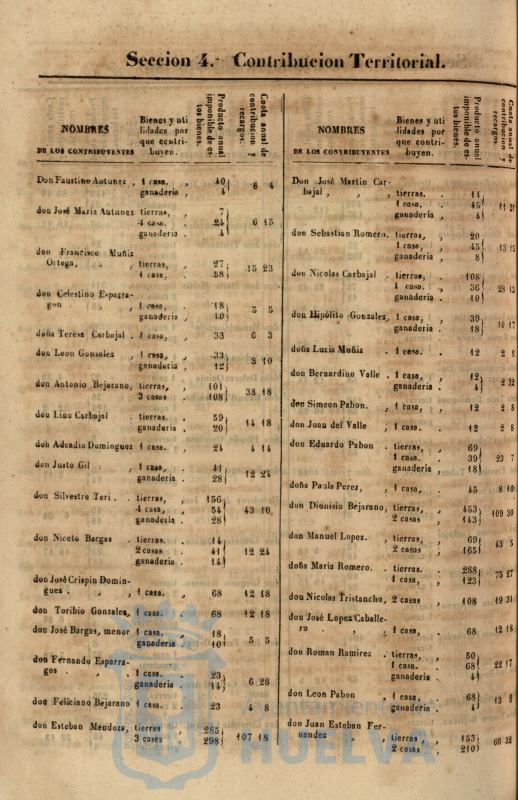 Seccion 4.- Contribucion Territorial.
NOMBRES
DE LOS CONTRIBUYENTES
Bienes y uti
lidades por
que contri-
buyen.
Producto anual
imponible de es-
tos bienes.
Cuota anual de
contribucion y
recargos.
Don Faustino Antunez , 1 casa, , 40
ganaderia , 4 8 4
don José Maria Antunez tierras, , 7
4 casa. , 24 6 15
ganaderia . 4
don Francisco Muñiz
Ortega, . , tierras, , 27
1 casa, , 58 15 23
don Celestino Esparra-
gon . . , 1 casa, , 18 5 5
ganaderia , 10
doña Teresa Carbajal . 1 casa, , 33 6 3
don Leon Gonzalez , 1 casa, , 33 8 10
ganaderia , 12
don Antonio Bejarano, tierras, , 101 38 18
3 casas . 108
don Lino Carbajal . tierras. . 59 14 18
ganaderia . 20
don Adcadio Dominguez 1 casa. . 24 4 14
don Justo Gil . , 1 casa, . 41 12 24
ganaderia . 28
don Silvestre Teri . . tierras, , 156
4 casa, , 54 43 10
ganaderia . 28
don Niceto Bargas . tierras. . 14
2 casas . 41 12 24
ganaderia . 14
don José Crispin Domin-
guez . , 1 casa. . 68 12 18
don Toribio Gonzalez, 1 casa. . 68 12 18
don José Bargas, menor 1 casa. . 18 5 5
ganaderia . 10
don Fernando Esparra-
gos . . , 1 casa. . 23 6 28
ganaderia . 14
don Feliciano Bejarano 1 casa. . 23 4 8
don Esteban Mendoza, tierras . 285 107 18
3 casas . 298
NOMBRES
DE LOS CONTRIBUYENTES
Bienes y uti
lidades por
que contri-
buyen.
Producto anual
imponible de es-
tos bienes.
Cuota anual de
contribucion y
recargos.
Don José Martin Car-
bajal , , , tierras. . 14
1 casa, . 45 11
ganaderia , 4
don Sebastian Romero. tierras, , 20
1 casa, , 45 13
ganaderia , 8
don Nicolas Carbajal . tierras, . 108
1 casa. . 36 28
ganaderia . 10
don Hipólito Gonzalez, 1 casa, , 39 10 17
ganaderia . 18
doña Lucia Muñiz . 1 casa. . 12 2 8
don Bernardino Valle . 1 casa, , 12 2 32
ganaderia . 4
don Simeon Pabon. , 1 casa, , 12 2 8
don Juan del Valle , 1 casa, . 12 2 8
don Eduardo Pabon . tierras, . 69
1 casa, . 39 23 7
ganaderia , 18
doña Paula Perez, , 1 casa, . 45 8 10
don Dionisio Bejarano, tierras, . 453 109 30
2 casas , 143
don Manuel Lopez. , tierras, , 69 43 5
2 casas , 165
doña Maria Romero. . tierras. . 288 75 27
1 casa, , 123
don Nicolas Tristancho, 2 casas , 108 19 31
don José Lopez Caballe-
ro . . , 1 casa, , 68 12 18
don Roman Ramirez . tierras, , 50
1 casa. . 68 22 17
ganaderia . 4
don Leon Pabon , 1 casa, . 68 13 9
ganaderia . 4
don Juan Esteban Fer-
nandez , , tierras , , 153 66 32
2 casas , 210
Ayuntamiento de
HUELVA